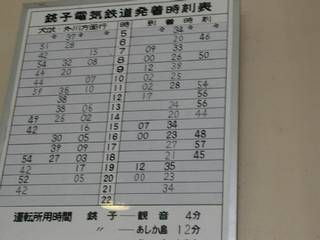 銚子電気鉄道発着時刻表
犬吠 外川方面行 時 到着時刻
37 5 34
51 28 6 20 46
42 15 7 09 33
54 32 08 8 00 26 50
44 20 9 12 38
44 07 10 02 25
11 02 28 54
36 12 17 56
38 13 34
38 06 14 20 44
49 26 02 15 07 34
30 05 16 00 23 48
39 09 17 27 57
54 27 03 18 21 45
42 17 19 12 35
52 05 20 00 23
42 21 34
22
運転所用時間 銚子―観音 4分
〃 ―あしか島 12分